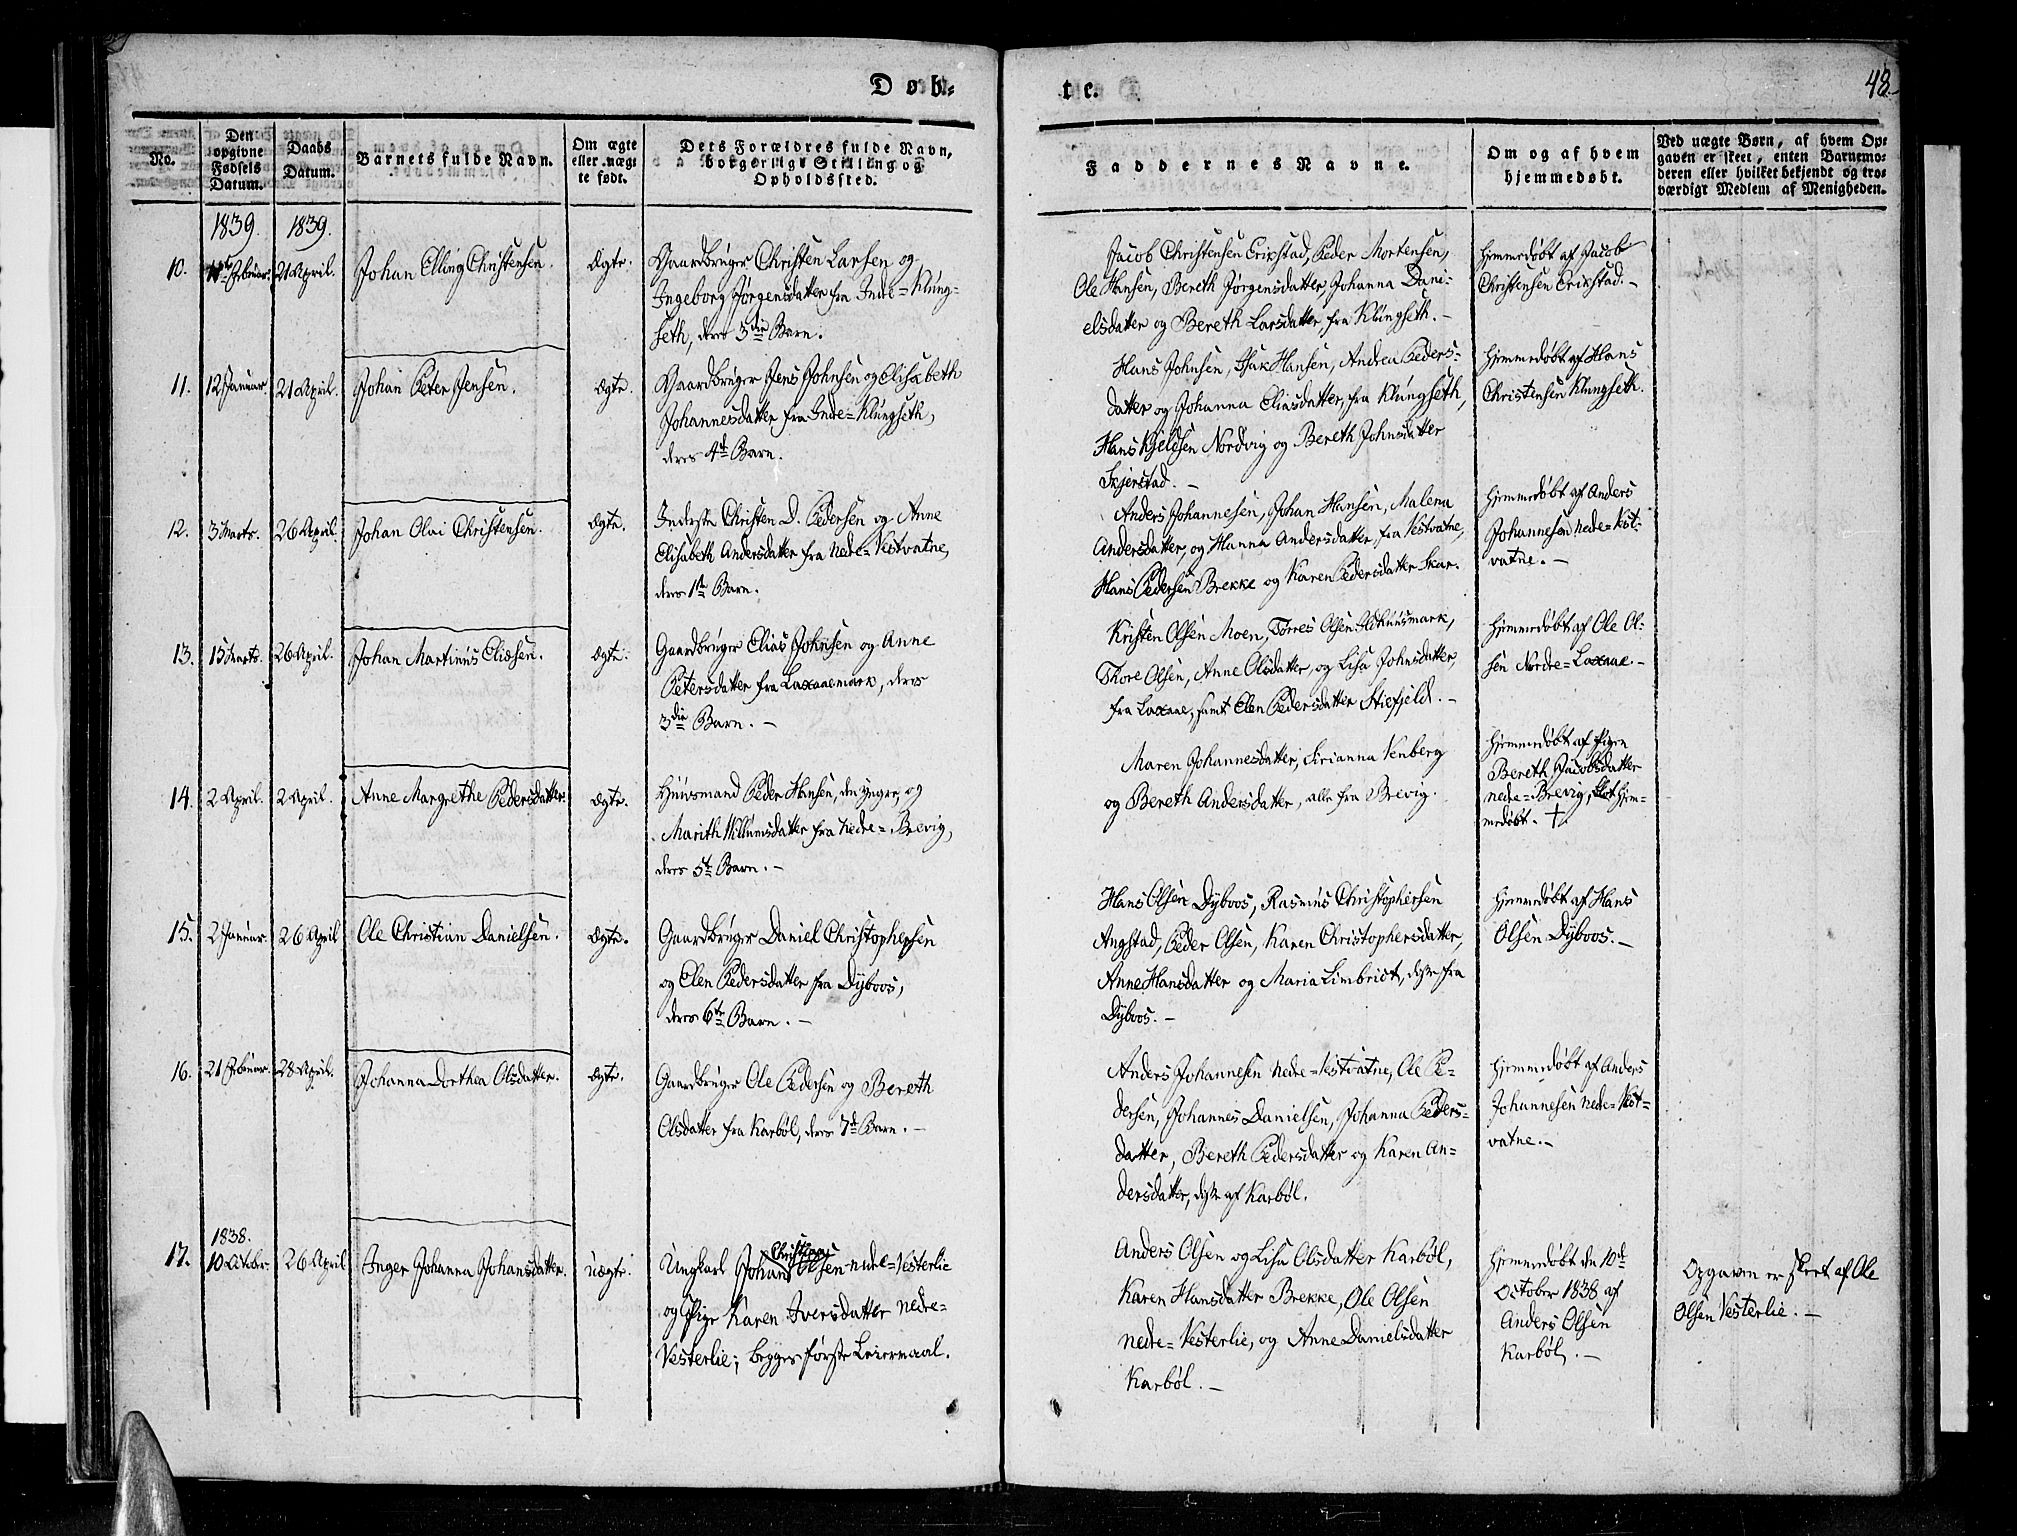 Døb-
te.
48
No.
Den
opgivne
Fødsels
Datum.
Daabs
Datum.
Barnets fulde Navn.
Om ægte
eller uægte
te født.
Dets Forældres fulde Navn,
borgerlige Stilling og
Opholdssted.
Faddernes Navne.
Om og af hvem
hjemmedøbt.
Ved uægte Børn, af hvem Op-
gaven er skeet, enten Barnemo-
deren eller hvilket bekjendt og tro-
værdigt Medlem af Menigheden.
1839.
1839.
10.
Februar.
21 April.
Johan Elling Christensen.
Ægte.
Gaardbruger Christen Larsen og
Ingeborg Jørgensdatter fra Inde=Klung-
seth, deres 3die Barn.
Jacob Christensen Erikstad, Peder Mortensen,
Ole Hansen, Bereth Jørgensdatter, Johanna Dani-
elsdatter og Bereth Larsdatter, fra Klungseth.-
Hjemmedøbt af Jacob
Christensen Erikstad.-
11.
12 Januar.
21 April.
Johan Peter Jensen.
Ægte.
Gaardbruger Jens Johnsen og Elisabeth
Johannesdatter fra Inde=Klungseth,
deres 4de Barn.
Hans Johnsen, Isak Hansen, Andrea Peders-
datter og Johanna Eliasdatter, fra Klungseth,
Hans Kjeldsen Nordvig og Bereth Johnsdatter
Skjerstad.-
Hjemmedøbt af Hans
Christensen Klungseth.
12.
3 Marts.
26 April.
Johan Olai Christensen.
Ægte.
Inderste Christen D. Pedersen og Anne
Elisabeth Andersdatter fra nedre=Vestvatne,
deres 1ste Barn.
Anders Johannesen, Johan Hansen, Malena
Andersdatter, og Hanna Andersdatter, fra Vestvatne,
Hans Pedersen Brekke og Karen Pedersdatter Skar.
Hjemmedøbt af Anders
Johannesen nedre=Vest-
vatne.-
13.
15 Marts.
26 April.
Johan Martinus Eliasen.
Ægte.
Gaardbruger Elias Johnsen og Anne
Petersdatter fra Laxaaemark, deres
3die Barn.-
Kristen Olsen Moen, Torres Olsen
Thore Olsen, Anne Olsdatter, og Lisa Johnsdatter,
fra Laxaae, samt Elen Pedersdatter Stiefjeld.-
Hjemmedøbt af Ole Ol-
sen Nordre=Laxaae.-
14.
2 April.
2 April.
Anne Margrethe Pedersdatter.
Ægte.
Huusmand Peder Hansen, den yngre, og
Marith Willumsdatter fra nedre=Brevig,
deres 5te Barn.-
Maren Johannesdatter, Sirianna Venberg
og Bereth Andersdatter, alle fra Brevig.
Hjemmedøbt af Pigen
Bereth Jacobsdatter
nedre=Brevig, blot hjem-
medøbt. +
15.
2 Januar.
26 April
Ole Christian Danielsen.
Ægte.
Gaardbruger Daniel Christophersen
og Elen Pedersdatter fra Dybvos,
deres 6te Barn.-
Hans Olsen Dybvos, Rasmus Christophersen
Angstad, Peder Olsen, Karen Christophersdatter,
Anne Hansdatter og Maria Limbridt, disse fra
Dybvos.-
Hjemmedøbt af Hans
Olsen Dybvos.-
16.
21 Februar.
28 April.
Johanna Dorthea Olsdatter.
Ægte.
Gaardbruger Ole Pedersen og Bereth
Olsdatter fra Karbøl, deres 7de Barn.-
Anders Johannesen nedre=Vestvatne, Ole Pe-
dersen, Johannes Danielsen, Johanna Peders-
datter, Bereth Pedersdatter og Karen An-
dersdatter, disse af Karbøl.
Hjemmedøbt af Anders
Johannesen nedre=Vest-
vatne.-
17.
1838.
10 October.
26 April
Inger Johanna Johansdatter.
Uægte.
Christian
Ungkarl Johan Olsen nedre=Vesterlie
og Pige Karen Iversdatter nedre=
Vesterlie; begges første Leiermaal.
Anders Olsen og Lisa Olsdatter Karbøl,
Karen Hansdatter Brekke, Ole Olsen
nedre=Vesterlie, og Anne Danielsdatter
Karbøl.-
Hjemmedøbt den 10de
October 1838 af
Anders Olsen
Karbøl.-
Opgaven er skeet af Ole
Olsen Vesterlie.-